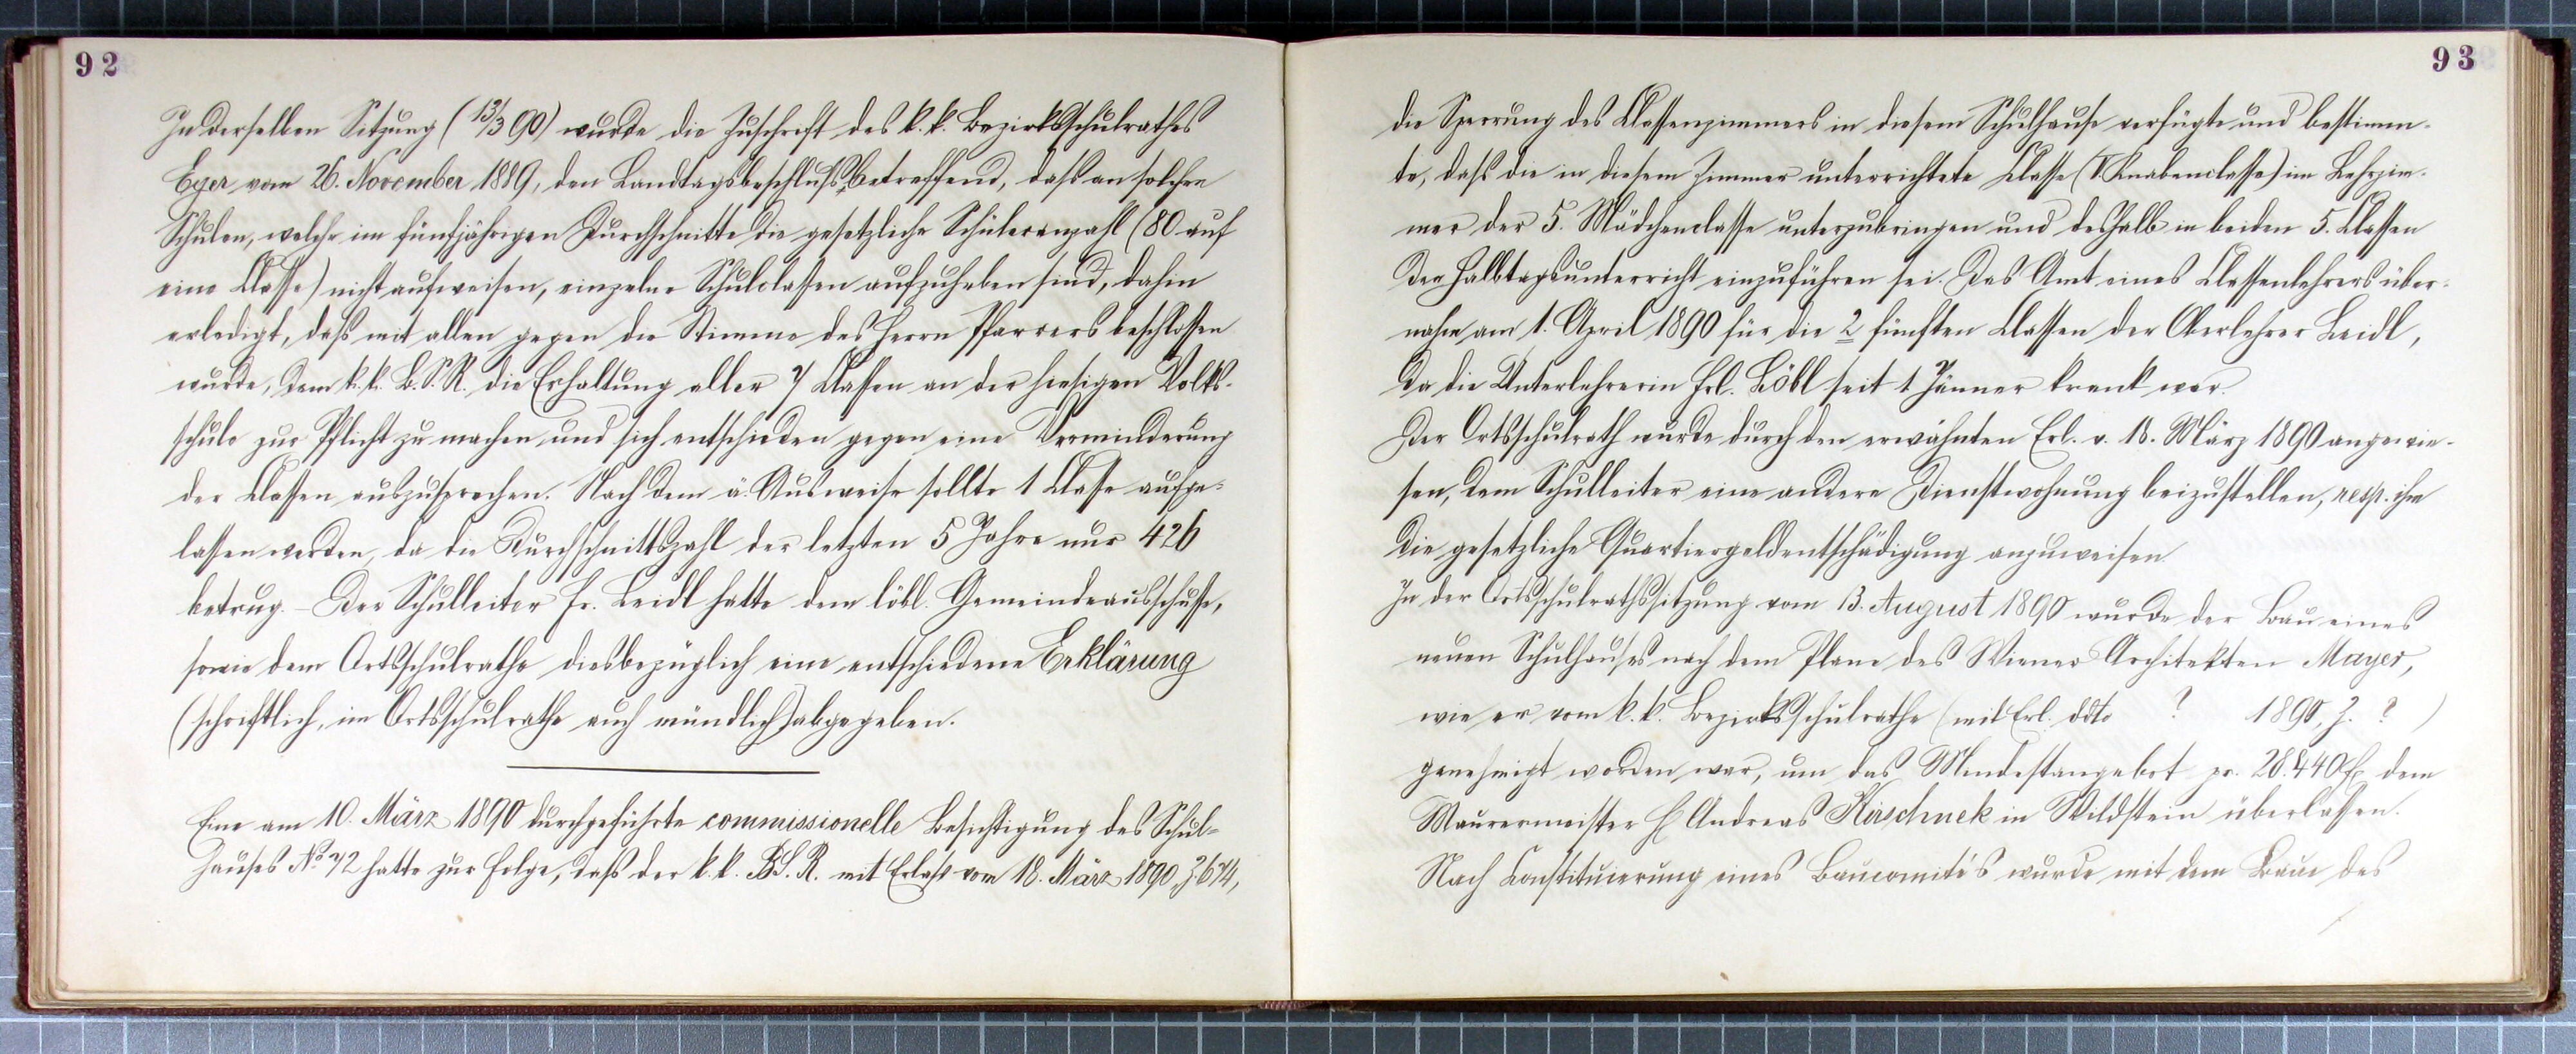 92
In derselben Sitzung (13/3 90) wurde die Zuschrift des k. k. Bezirksschulrathes
Eger vom 26. November 1889, den Landtagsbeschluß betreffend, daß an solchen
Schulen, welche im fünfjährigen Durchschnitte die gesetzliche Schüleranzahl (80 auf
eine Classe) nicht aufweisen, einzelne Schulclassen aufzuheben sind, dahin
erledigt, daß mit allen gegen die Stimme des Herrn Pfarrers beschlossen
wurde, dem k. k. B. S. R. die Erhaltung aller 7 Classen an der hiesigen Volks-
schule zur Pflicht zu machen und sich entschieden gegen eine Verminderung
der Classen auszusprechen. Nach dem ä. Ausweise sollte 1 Classe aufge-
lassen werden, da die Durchschnittszahl der letzten 5 Jahre nur 426
betrug. – Der Schulleiter Fr. Leidl hatte dem löbl. Gemeindeausschusse,
sowie dem Ortsschulrathe diesbezüglich eine entschiedene Erklärung
(schriftlich, im Ortsschulrathe auch mündlich) abgegeben.
Eine am 10. März 1890 durchgeführte commissionelle Besichtigung des Schul-
hauses No 72 hatte zur Folge, daß der k. k. B. S. R. mit Erlaß vom 18. März 1890, Z 674,
93
die Sperrung des Classenzimmers in diesem Schulhause verfügte und bestimm-
te, daß die in diesem Zimmer unterrichtete Classe (V. Knabenclasse) im Lehrzim-
mer der 5. Mädchenclasse unterzubringen und deshalb in beiden 5. Classen
der Halbtagsunterricht einzuführen sei. Das Amt eines Classenlehrers über-
nahm am 1. April 1890 für die 2 fünften Classen der Oberlehrer Leidl,
da die Unterlehrerin Frl. Löbl seit 1 Jänner krank war.
Der Ortsschulrath wurde durch den erwähnten Erl. v. 18. März 1890 angewie-
sen, dem Schulleiter eine andere Dienstwohnung beizustellen, resp. ihm
die gesetzliche Quartiergeldentschädigung anzuweisen.
In der Ortsschulrathssitzung vom 13. August 1890 wurde der Bau eines
neuen Schulhauses nach dem Plane des Wiener Architekten Mayer,
wie er vom k. k. Bezirksschulrathe (mit Erl. ddto ? 1890, Z. ? )
genehmigt worden war, um das Mindestangebot pr. 28.440 fl dem
Maurermeister H Andreas Kirschnek in Wildstein überlassen.
Nach Constituierung eines Baucomités wurde mit dem Baue des